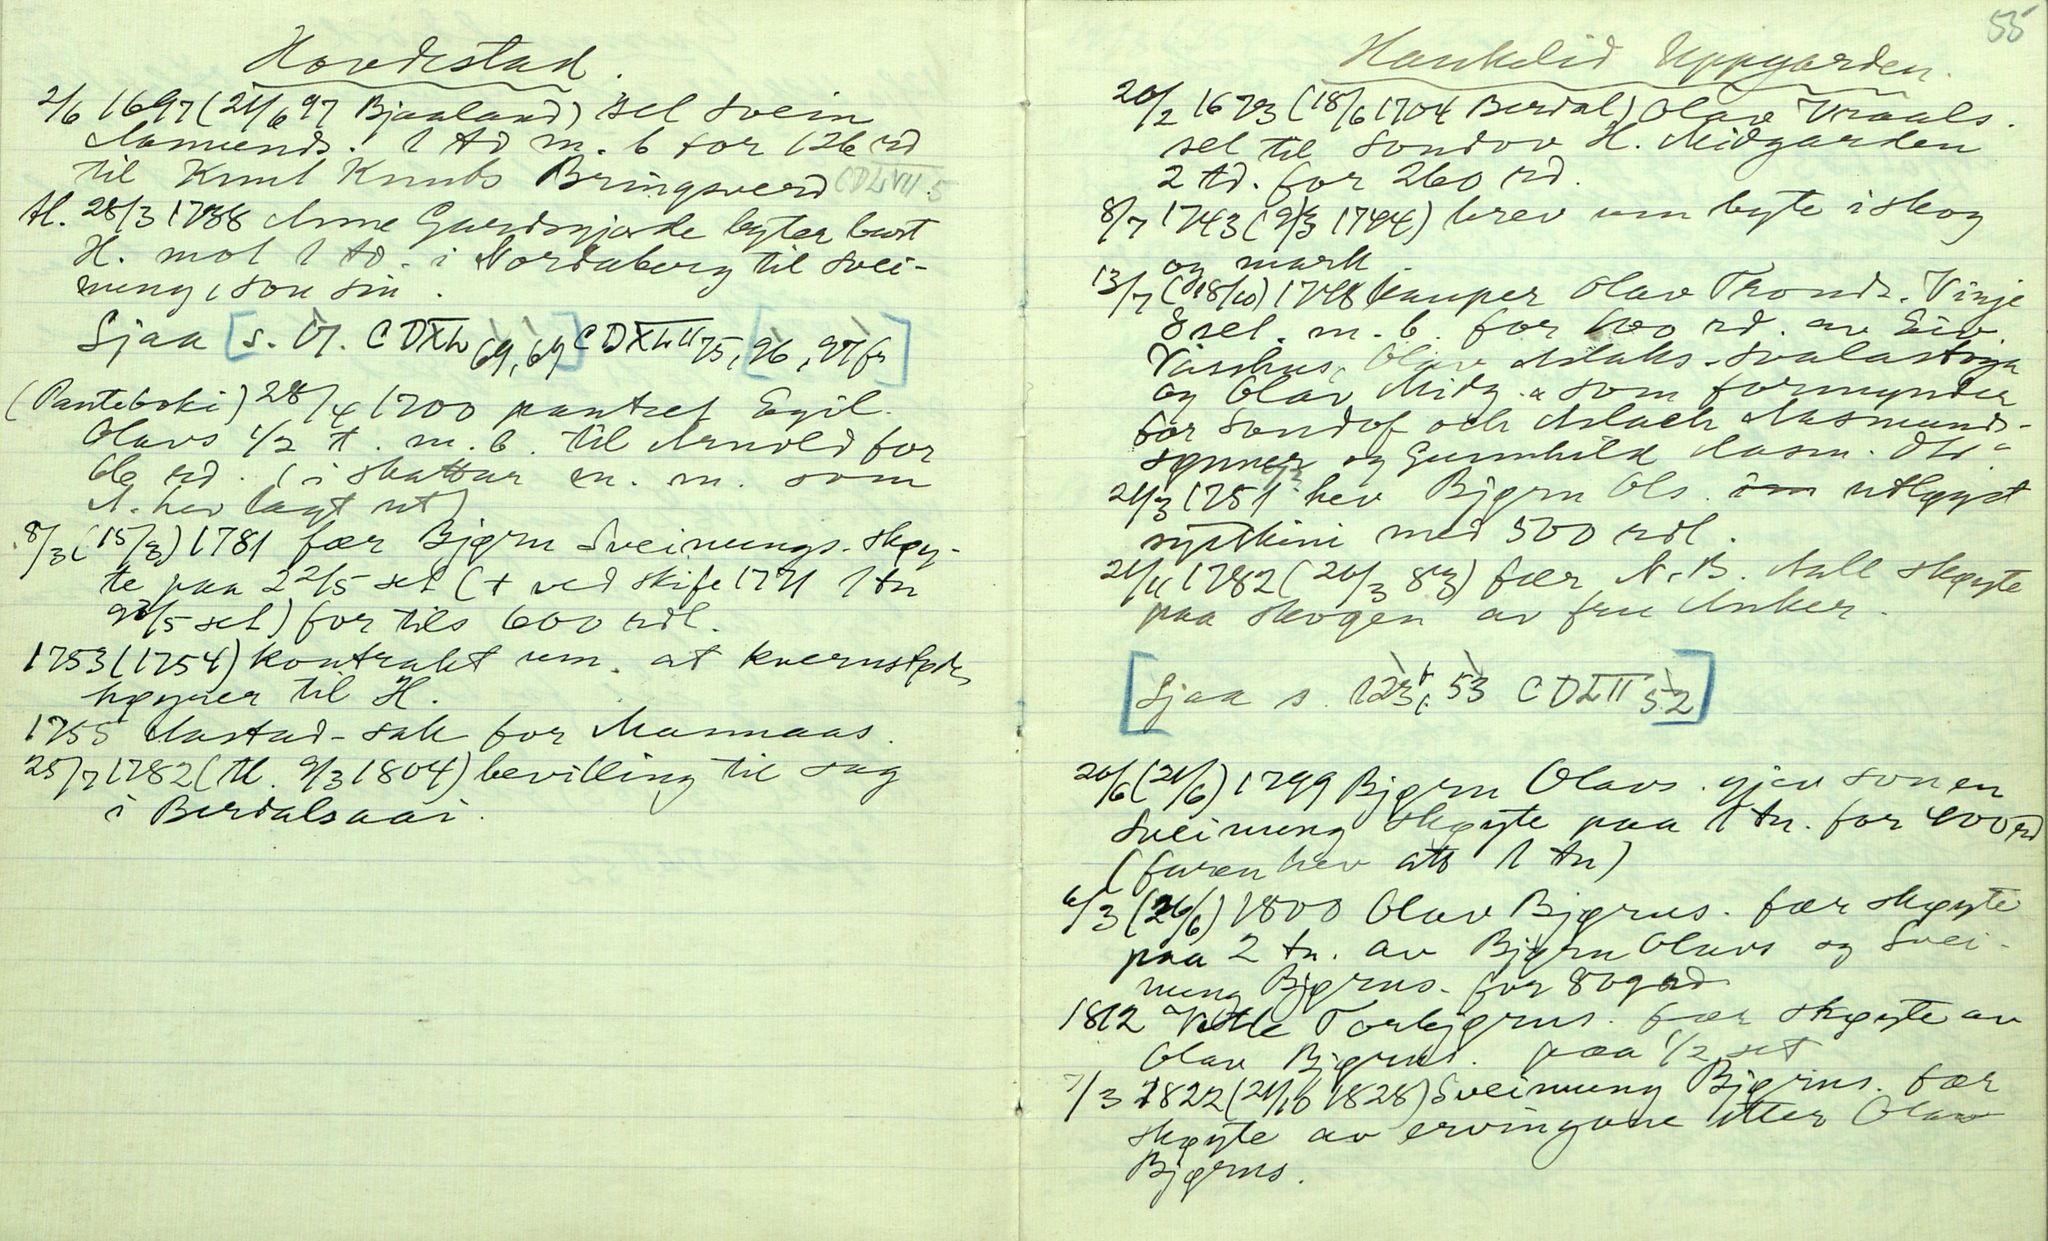 Hovdestad.
2/6 1697 (21/6 97 Bjaaland) sel Svein
Aamunds. 1 td m. b for 126 rd
til Knut Knuts Bringsverd CDLVII 5
tl. 28/3 1788 Anne Gardsgjorde byter burt
H. mot 1 td. i Nordaberg til Svei-
nung, son sin.
Sjaa [s. 17. CDXL 69, 69] CDXLII 75, [96, 97 fr]
(Panteboki) 28/4 1700 pantset Egil
Olavs 1/2 t. m. b. til Arnold for
66 rd. (i skattar m. m. som
A. hev lagt ut)
8/3 (15/3) 1781 fær Bjørn Sveinungs. skøy-
te paa 2 2/5 set (+ ved skife 1771 1 tn
9 3/5 set) for tils 600 rdl.
1753 (1754) kontrakt um at kvernstøde
høyrer til H.
1755 Aastad-sak for Manaas.
25/7 1782 (tl. 9/3 1804) bevilling til sag
i Berdalsaai.
55
Haukelid Uppgarden.
20/2 1673 (18/6 1704 Berdal) Olav Kraals.
sel til Sondov H. Midgarden
2 td. for 260 rd.
8/7 1743 (9/3 1744) brev um byte i skog
og mark.
13/7 (18/10) 1748 kauper Olav Tronds. Vinje
8 sel. m. b. for 600 rd. av Eiv.
Vaashus, Olav Aslaks. Svalastoga
og Olav Midg. a som formynder
for Sondof och Aslach Aasmunds-
sønner og Gunnhild Aasm. dtr"
21/3 1751 hev Bjørn Ols. utløyst
syskini med 500 rdl.
21/11 1782 (20/3 83) fær N. B. Aall skøyte
paa skogen av fru Anker.
[Sjaa s. 123, 53 CDLII 52]
20/6 (21/6) 1799 Bjørn Olavs. gjev sonen
Sveinung skøyte paa 1 tn. for 400 rd
(faren hev att 1 tn)
6/3 (26/6) 1800 Olav Bjørns. fær skøyte
paa 2 tn. av Bjørn Olavs og Svei-
nung Bjørns. for 809 rd
1812 Vetle Torbjørns. fær skøyte av
Olav Bjørns. paa 1/2 set
7/3 1822 (21/10 1828) Sveinung Bjørns. fær
skøyte av ervingane etter Olav
Bjørns.